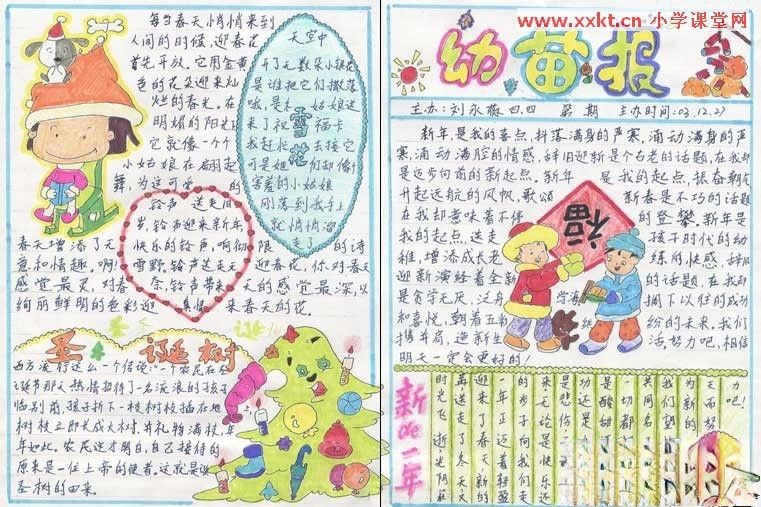 www.xxkt.cn 小学课堂网
每当春天悄悄来到
人间的时候,迎春花
首先开放。它用金黄
色的花朵迎来灿
烂的春光。在
明媚的阳光
它就像一个个
小姑娘在翩起
舞,为这可爱的
春天增添了无限的诗
意和情趣。啊!迎春花,你对春天
感觉最灵,对春天的感觉最深,以
绚丽鲜明的色彩迎来春天的花。
天空中
开了无数朵小银花
是谁把它们撒落
哦,是
姑娘送
来了祝福卡
我赶忙去接它
可是她们却像个
害羞的小姑娘
刚落到我手上
就悄悄溜
走了
雪花
铃声送走旧
岁,铃声迎来新年,
快乐的铃声,响彻
雪野。铃声送走
铃声带来
圣诞
圣诞树
西方流行这么一个传说:一个农民在圣
诞节那天热情招待了一名流浪的孩子
临别前,孩子折下一枝树枝插在地
树枝立即长成大树,并礼物满枝,年
年如此。农民这才明白,自己接待的
原来是一位上帝的使者。这就是
圣树的由来。
幼苗报
主办:刘永薇 四.四 第 期 主办时间:03.12.27
新年,是我的春点,抖落满身的严寒,涌动满身的严
寒,涌动满腔的情感,辞旧迎新是个古老的话题,在我却
是迈步向前的新起点,新年是我的起点,振奋朝气
升起远航的风帆,歌颂新春是不朽的话题
在我却意味着不停的登攀。新年是
我的起点,送走孩子时代的幼
稚,增添成长老练的快感,辞旧
迎新演绎着全新的话题,在我却
是贪学无厌,泛舟学海
撷下以胜的成功
和喜悦,朝着五
纷的未来。我们
携并肩,迎新生活努力吧,相信
明天一定会更好的!
福
新de一年
时光飞逝,光阴
再送走了冬天又
迎来了春天,新的
一年正迈着轻盈
的步子向我们走
来,无论是快乐还
是悲伤
功还是
是醒
一切都
共同
我们望
为新的
天而努
力吧!